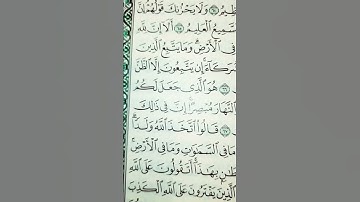 وَلَا يَحْزُنكَ قَوْلُهُمْ إِنَّ
السَّمِيعُ الْعَلِيمُ أَلَا إِنَّ لِلَّهِ
فِي الْأَرْضِ وَمَا يَتَّبِعُ الَّذِينَ
شُرَكَاءَ إِن يَتَّبِعُونَ إِلَّا الظَّنَّ
هُوَ الَّذِي جَعَلَ لَكُمُ
النَّهَارَ مُبْصِرًا إِنَّ فِي ذَٰلِكَ
قَالُوا اتَّخَذَ اللَّهُ وَلَدًا
مَا فِي السَّمَاوَاتِ وَمَا فِي الْأَرْضِ
بِهَٰذَا أَتَقُولُونَ عَلَى اللَّهِ
الَّذِينَ يَفْتَرُونَ عَلَى اللَّهِ الْكَذِبَ